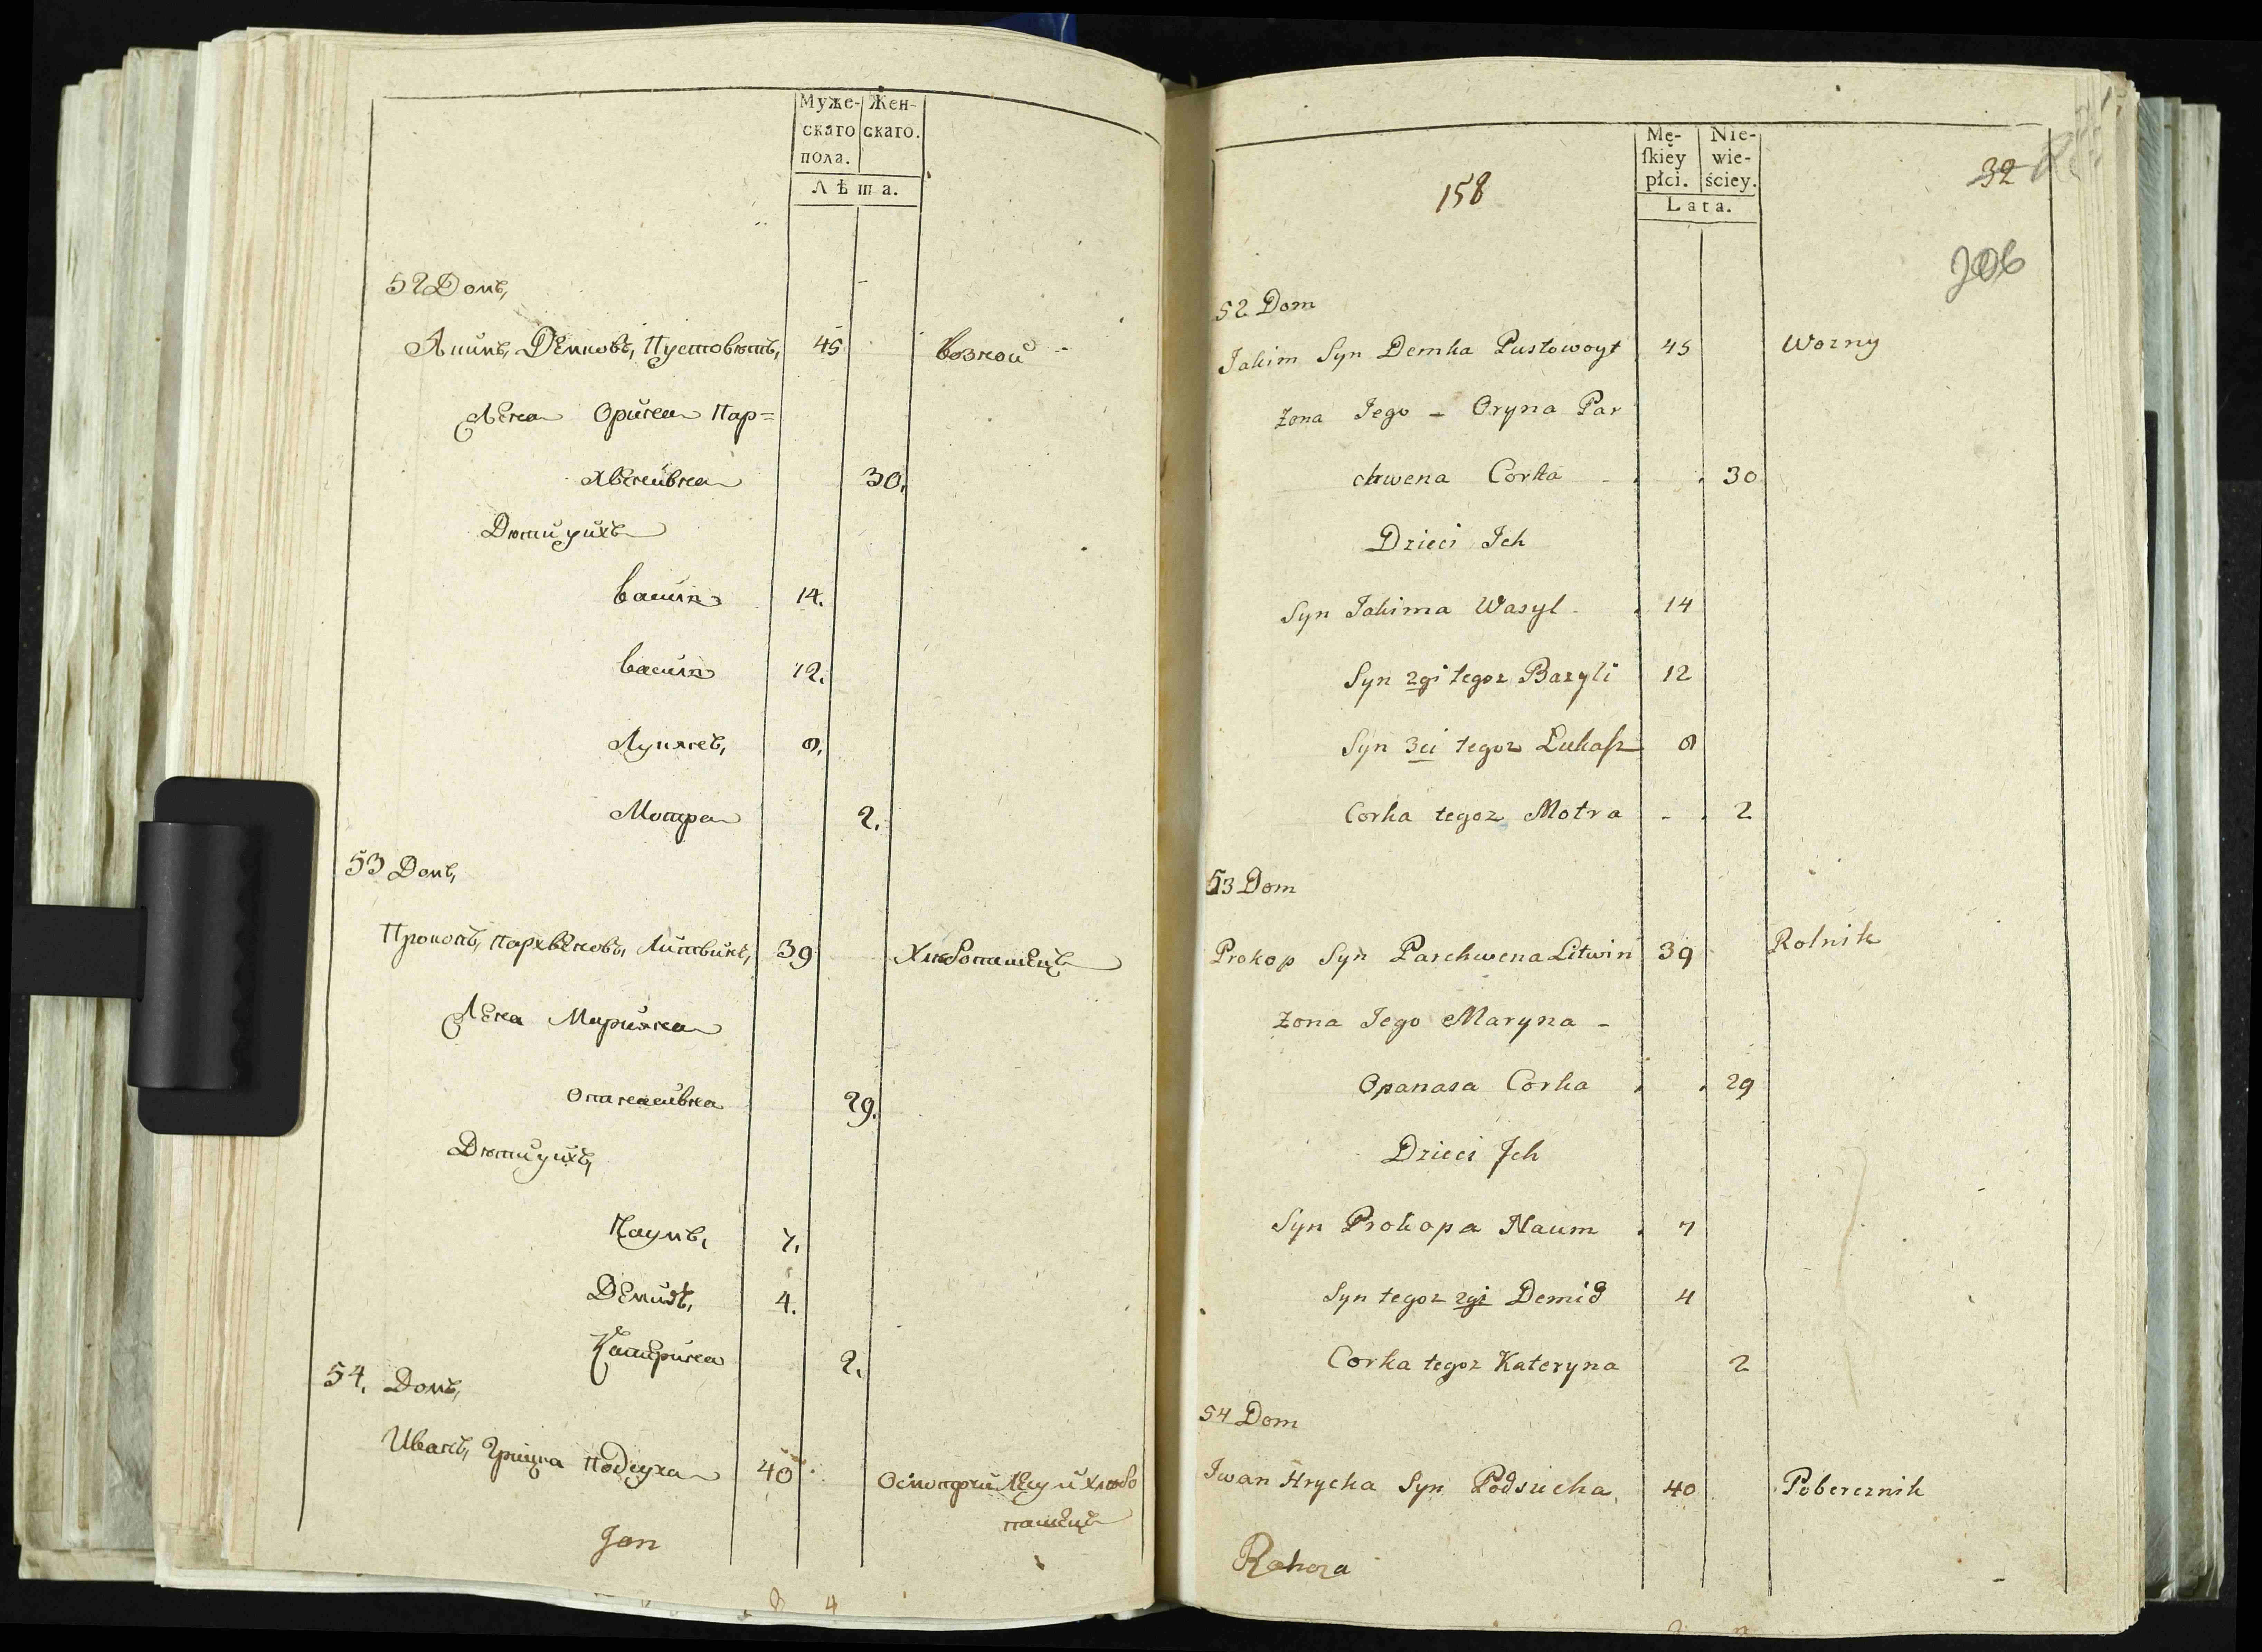 Муже- Жен-
скаго скаго.
пола.
Лѣта.
52 Домъ,
Якимъ, Демковъ, Пустовютъ, 45 возной
Жена Орина Пар=
хвенивна 30.
Дюти ухъ
васил 14.
васил 12.
Лукянъ, 8.
Мотра 2.
53 Домъ,
Прокопъ, Пархвеновъ, Литвинъ, 39 Хлюбопашецъ
Жена Мариана
Опанасивна 29.
Дюти ихъ,
Наумъ, 7.
Демидъ, 4.
Катрина 2.
54. Домъ,
Иванъ, Грицка Подсуха 40 Осмотрий Лесу и Хлюбо
пашецъ
Jan
Mę- Nie-
ſkiey wie-
płci. ściey.
Lata.
158
32
206
52 Dom
Jakim Syn Demka Pustowoyt 45 Wozny
Zona Jego - Oryna Par
chwena Corka 30
Dzieci Ich
Syn Jakima Wasyl 14
Syn 2gi tegoz Bazyli 12
Syn 3ci tegoz Lukaſz 8
Corka tegoz Motra - 2
53 Dom
Prokop Syn Parchwena Litwin 39 Rolnik
Zona Jego Maryna -
Opanasa Corka 29
Dzieci Ich
Syn Prokopa Naum 7
Syn tegoz 2gi Demid 4
Corka tegoz Kateryna 2
54 Dom
Iwan Hrycka Syn Podsucha 40 Pobereznik
Rahoza